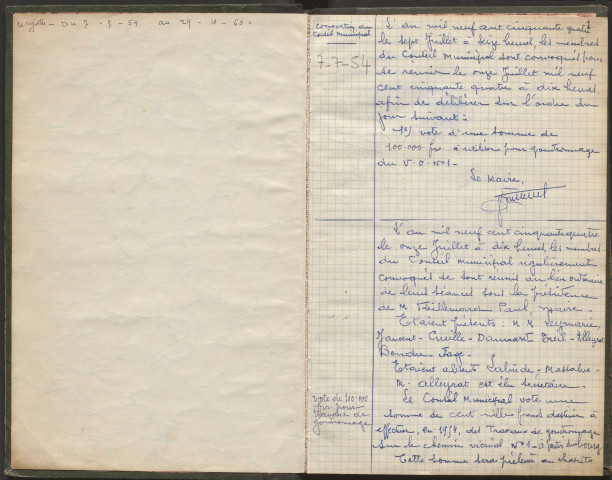 registre - Du 7 - 7 - 54 au 29 - 10 - 60 -
Convocation du
Conseil Municipal
7-7-54
L'an mil neuf cent cinquante quatre
le sept Juillet à seize heures, les membres
du Conseil Municipal sont convoqués pour
se réunir le onze Juillet mil neuf
cent cinquante quatre à dix heures,
afin de délibérer sur l'ordre du
jour suivant :
1°) vote d'une somme de
100.000 frs. à utiliser pour goudronnage
du V.O. N°1 -
Le Maire,
L'an mil neuf cent cinquante quatre
le onze Juillet à dix heures, les membres
du Conseil Municipal régulièrement
convoqués se sont réunis au lieu ordinaire
de leurs séances sous la présidence
de M. Paul, maire.
Etaient présents : M.M.
- Dammart - Alleyrat
Etaient absents Labride -
M. Alleyrat est élu secrétaire.
vote de 100.000
frs. pour
travaux de
goudronnage
Le Conseil Municipal vote une
somme de cent mille francs destinée à
effectuer, en 1954, des Travaux de goudronnage
sur le chemin vicinal N°1 - à partir du bourg
Cette somme sera prélevée au